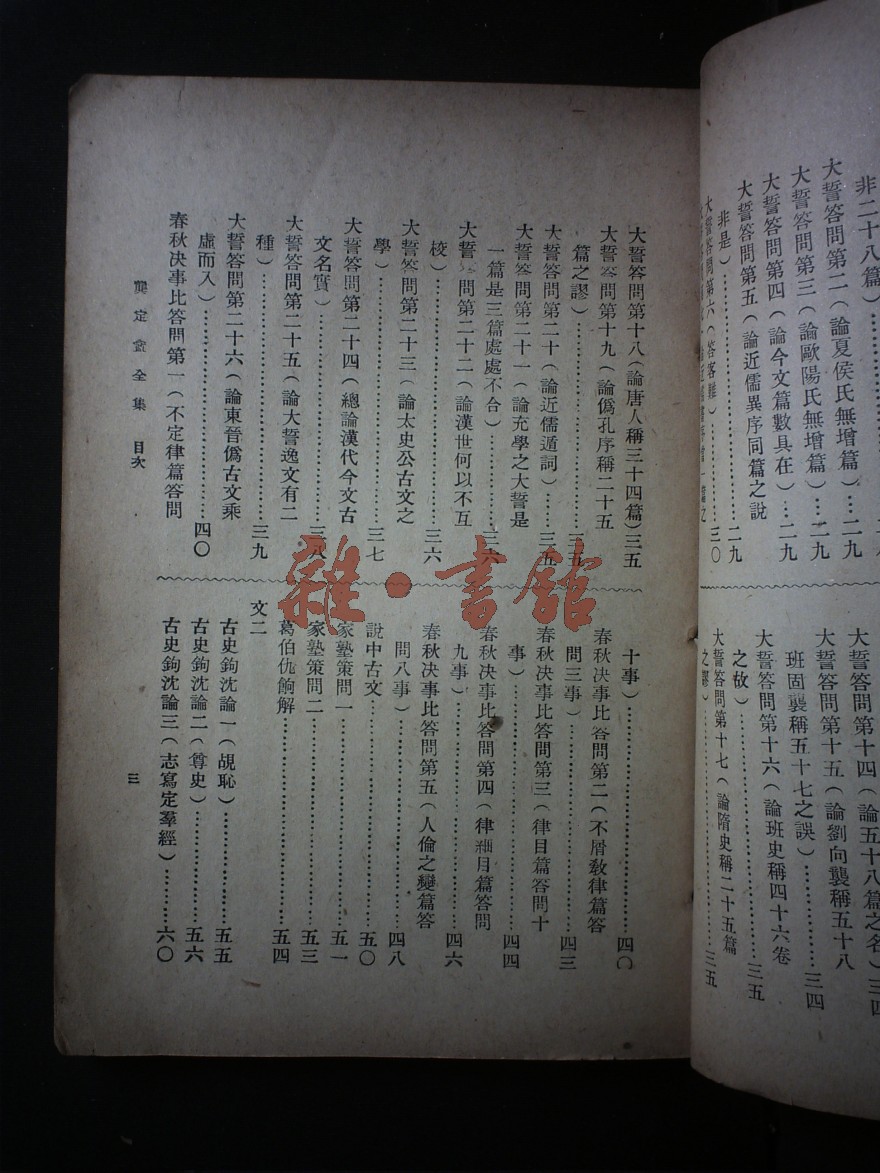 非二十八篇）
大誓答問第二（論夏侯氏無增篇）…二九
大誓答問第三（論歐陽氏無增篇）…二九
大誓答問第四（論今文篇數具在）…二九
大誓答問第五（論近儒異序同篇之說
非是）…………………二九
大誓答問第六（答客難）…………三〇
大誓答問第十四（論五十八篇之名）三四
大誓答問第十五（論劉向襲稱五十八
班固襲稱五十七之誤）……三四
大誓答問第十六（論班史稱四十六卷
之故）…………………三五
大誓答問第十七（論隋史稱二十五篇
之謬）…………………三五
大誓答問第十八（論唐人稱三十四篇）三五
大誓答問第十九（論僞孔序稱二十五
篇之謬）…………………三五
大誓答問第二十（論近儒遁詞）……三五
大誓答問第二十一（論充學之大誓是
一篇是三篇處處不合）……三六
大誓 問第二十二（論漢世何以不互
校）…………………三六
大誓答問第二十三（論太史公古文之
學）…………………三七
大誓答問第二十四（總論漢代今文古
文名實）…………………三八
大誓答問第二十五（論大誓逸文有二
種）…………………三九
大誓答問第二十六（論東晉僞古文乘
虛而入）…………………四〇
春秋決事比答問第一（不定律篇答問
十事）…………………四〇
春秋決事比答問第二（不屑敎律篇答
問三事）…………………四三
春秋決事比答問第三（律目篇答問十
事）…………………四四
春秋決事比答問第四（律細目篇答問
九事）…………………四六
春秋決事比答問第五（人倫之變篇答
問八事）…………………四八
說中古文…………………五〇
家塾策問一…………………五一
家塾策問二…………………五三
葛伯仇餉解…………………五四
文二
古史鉤沈論一（覘恥）…………五五
古史鉤沈論二（尊史）…………五六
古史鉤沈論三（志寫定羣經）……六〇
龔定盦全集 目次
三
雜·書館